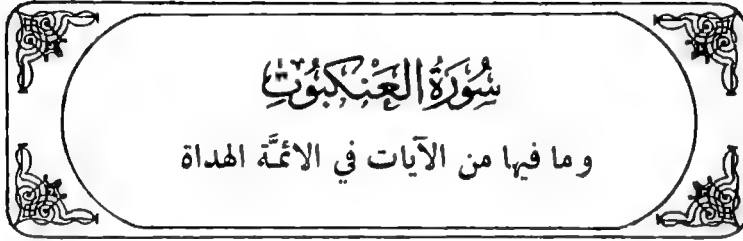 سُورَةُ العَنْكَبُوتِ
وما فيها من الآيات في الائمَّة الهداة